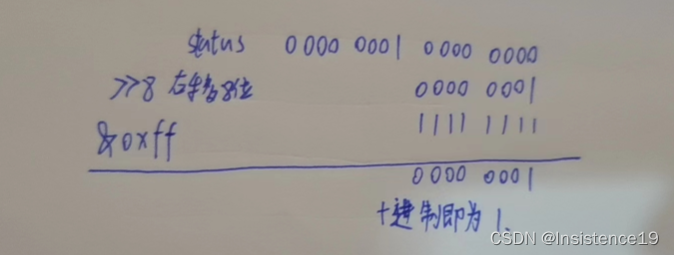 status 0000 0001 0000 0000
>>8 右移8位 0000 0001
&0xff 1111 1111
0000 0001
十进制即为1.
CSDN @Insistence19